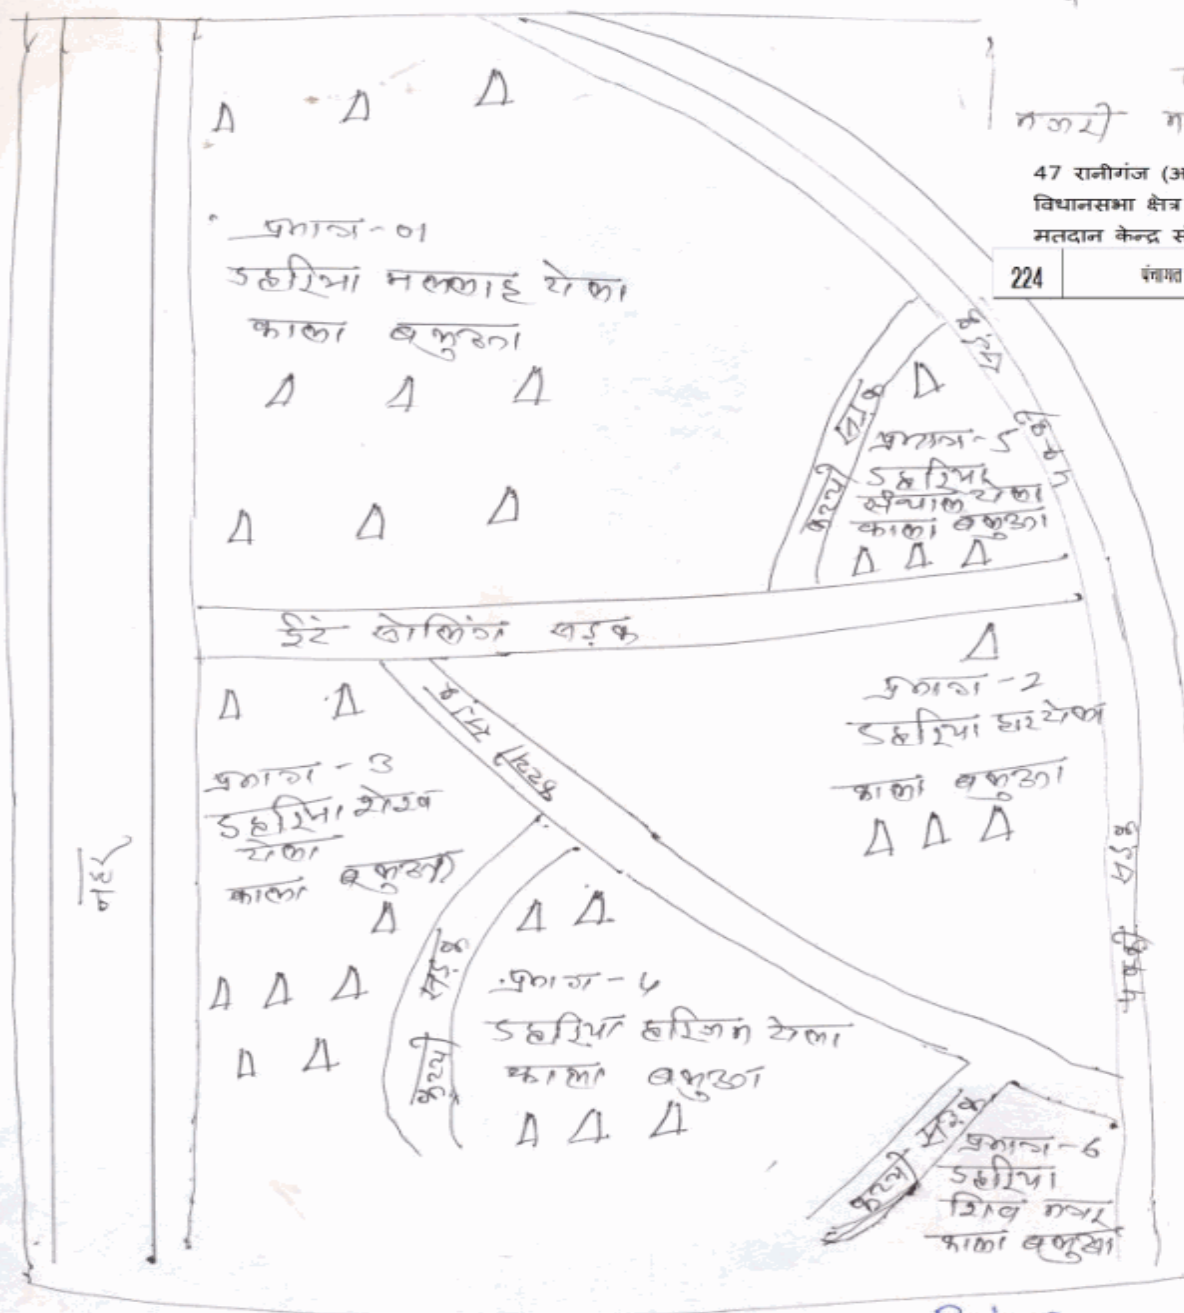 नजरी
47 रानीगंज (अ
विधानसभा क्षेत्र
मतदान केन्द्र सं
224 पंचायत
प्रभाग-01
डहरिया मल्लाह टोला
काला बलुआ
सड़क
पक्की
कच्ची सड़क
प्रभाग-5
डहरिया
संथाल टोला
काला बलुआ
ईट सोलिंग सड़क
प्रभाग-2
डहरिया
काला बलुआ
कच्ची सड़क
प्रभाग-3
डहरिया शेख
टोला
काला बलुआ
नहर
सड़क
पक्की
कच्ची सड़क
प्रभाग-4
डहरिया हरिजन टोला
काला बलुआ
कच्ची सड़क
प्रभाग-6
डहरिया
शिव नगर
काला बलुआ